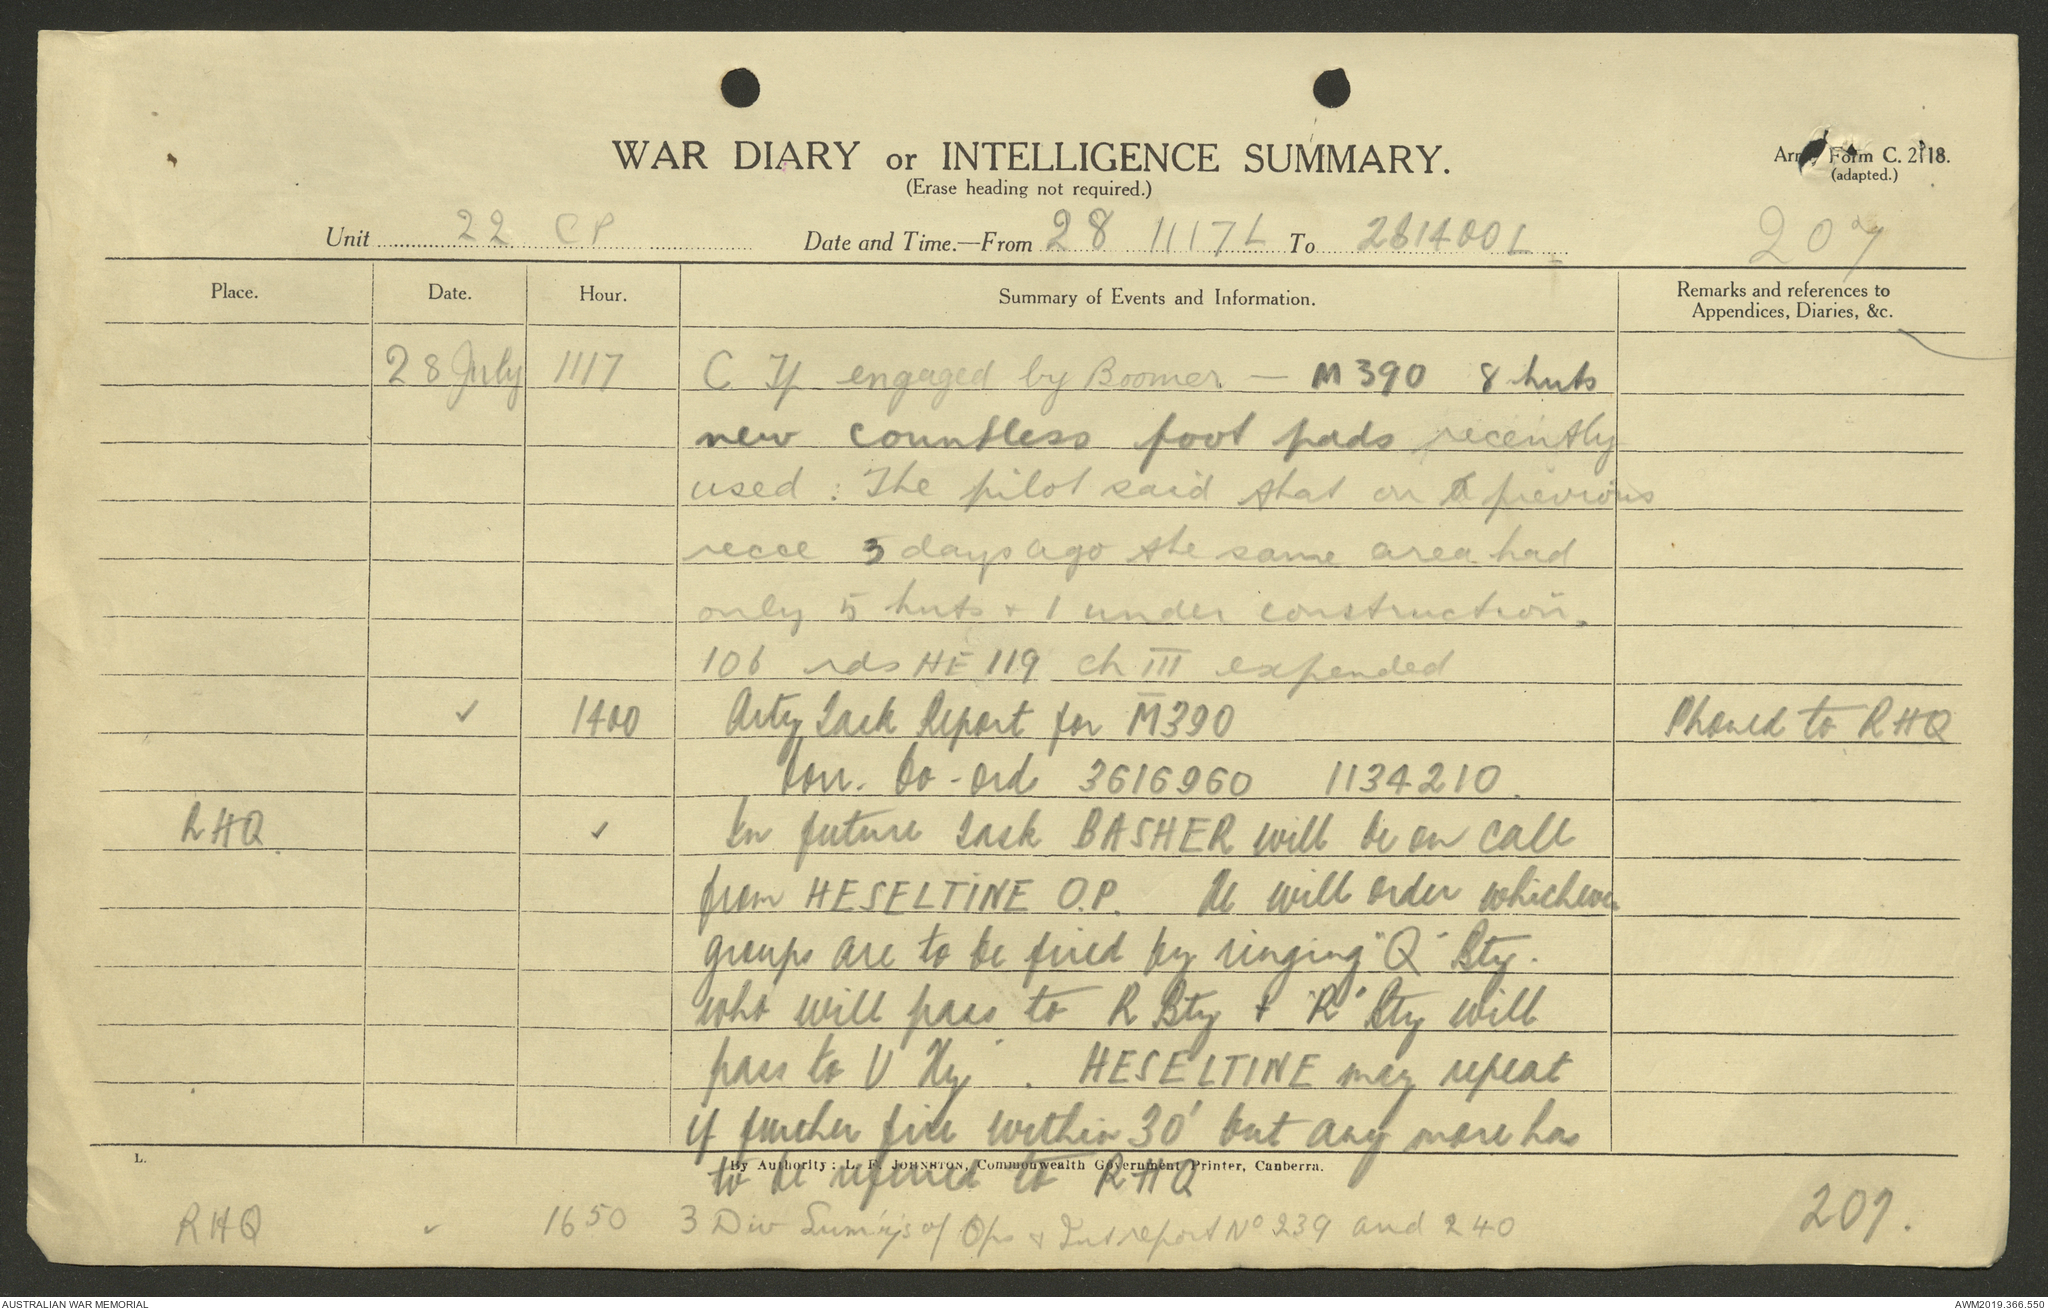 WAR DIARY or INTELLIGENCE SUMMARY.
(Erase heading not required.)
Army Form C. 2118.
(adapted.)
Unit 22 CP Date and Time.—From 28 1117L To 281400L
207
Place. Date. Hour. Summary of Events and Information. Remarks and references to Appendices, Diaries, &c.
28 July 1117 C Tp engaged by Boomer — M390 8 huts
new countless foot pads recently
used : The pilot said that on a previous
recce 5 days ago the same area had
only 5 huts + 1 under construction.
106 rds HE 119 ch III expended
✓ 1400 Arty Task Report for M390 Phoned to RHQ
Corr. Co-ord 3616960 1134210.
RHQ. ✓ In future task BASHER will be on call
from HESELTINE O.P. He will order whichever
groups are to be fired by ringing "Q" Bty.
who will pass to R Bty + "R" Bty will
pass to V Hy. HESELTINE may repeat
if further fire within 30' but any more has
to be referred to RHQ
L. By Authority: L. F. JOHNSTON, Commonwealth Government Printer, Canberra.
RHQ ✓ 1650 3 Div Sum'ys of Ops + Int report No 239 and 240
207.
AUSTRALIAN WAR MEMORIAL
AWM2019.366.550